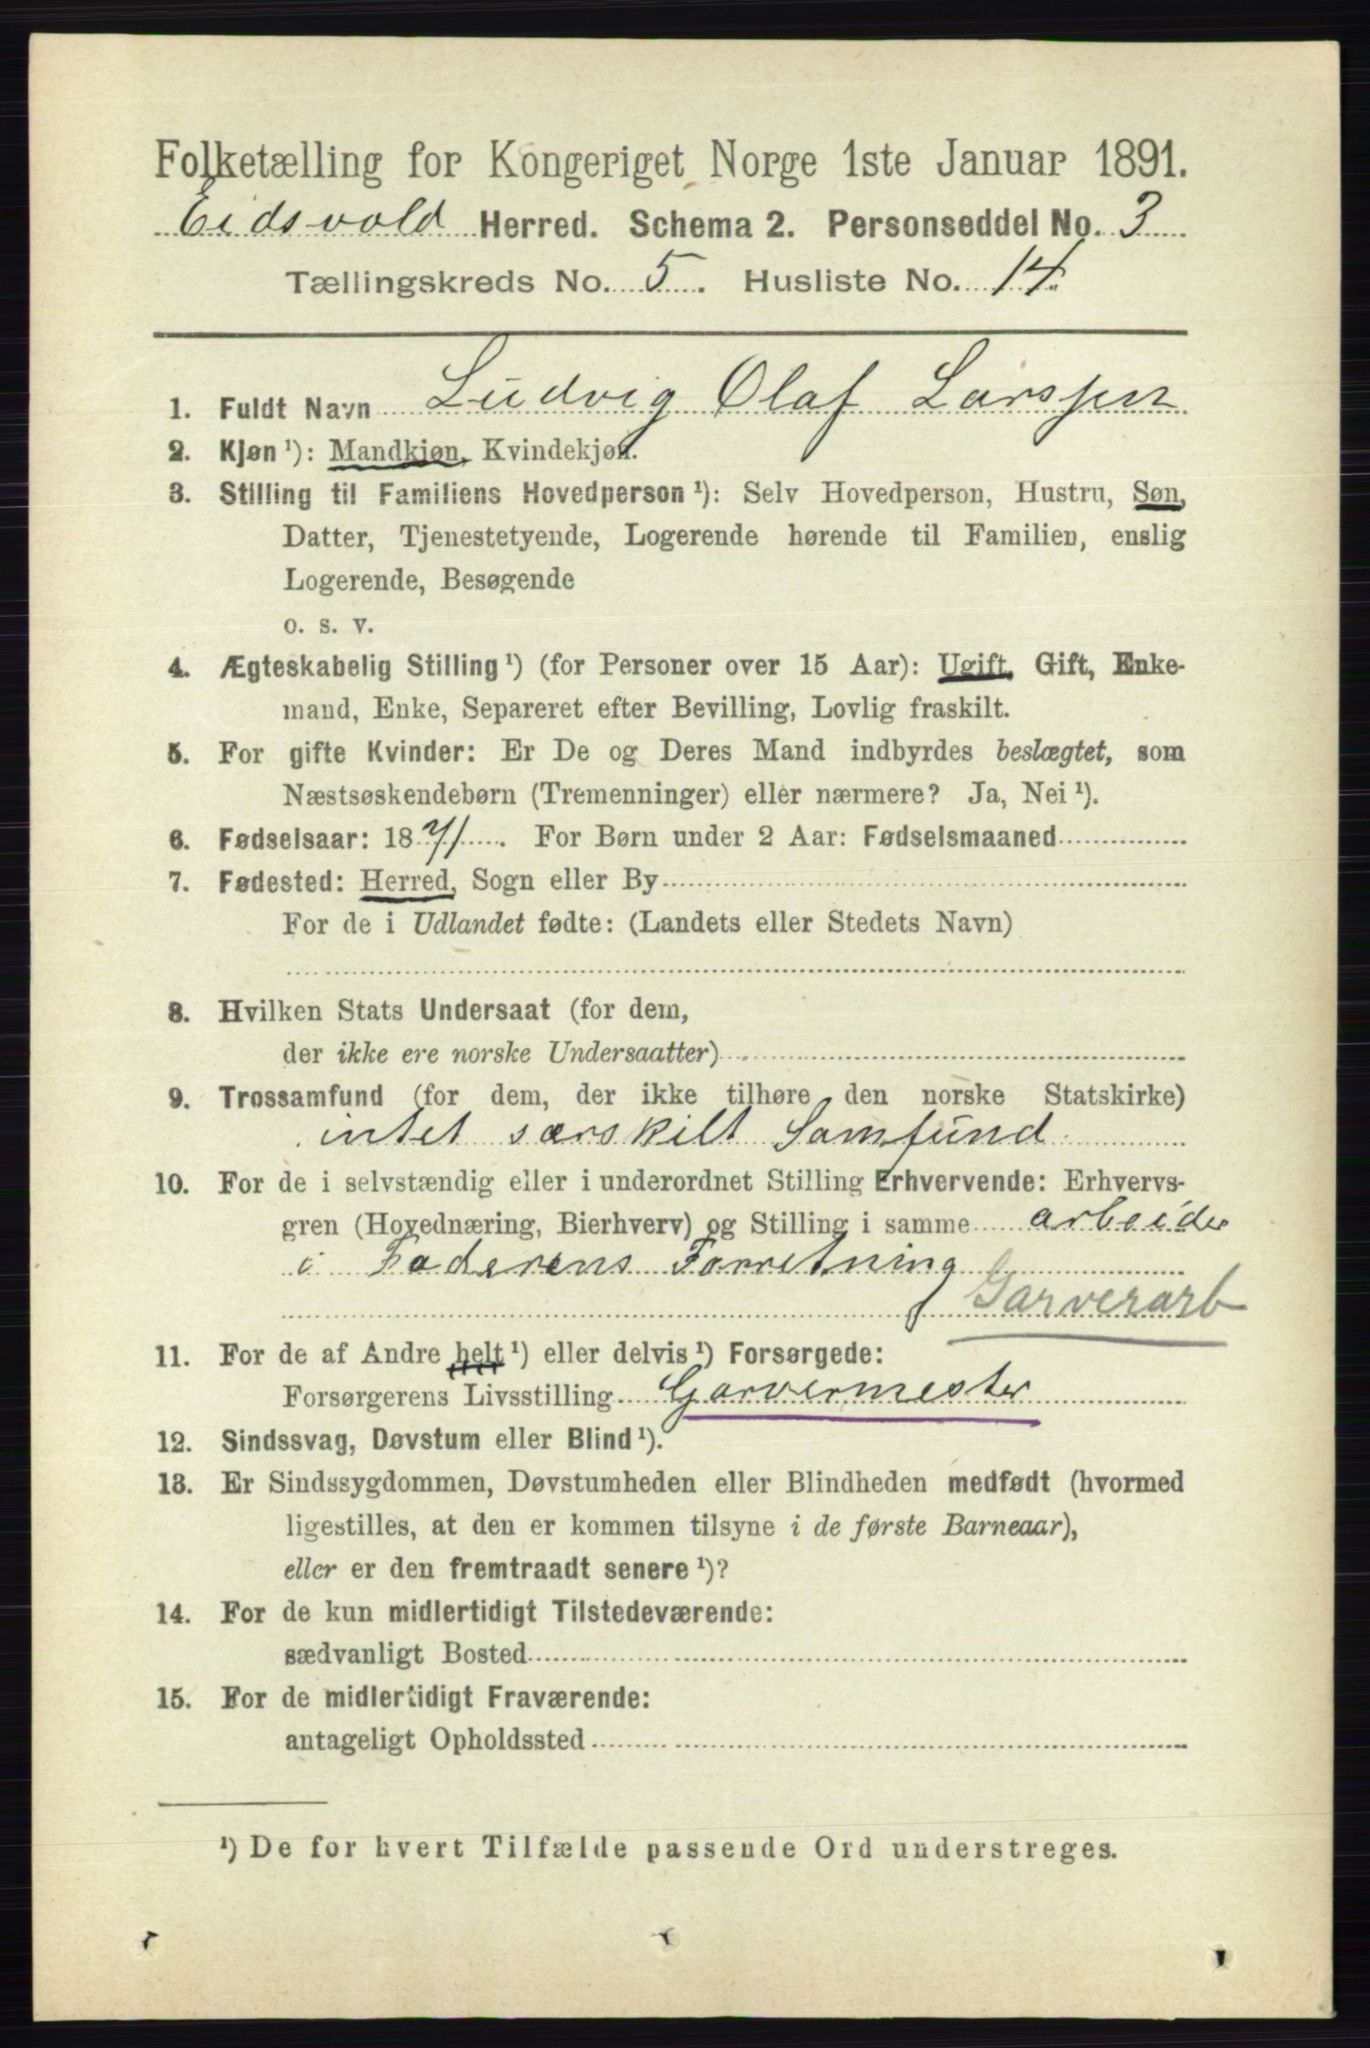 Folketælling for Kongeriget Norge 1ste Januar 1891.
Eidsvold Herred. Schema 2. Personseddel No. 3
Tællingskreds No. 5. Husliste No. 14
1. Fuldt Navn Ludvig Olaf Larssen
2. Kjøn ¹): Mandkjøn, Kvindekjøn.
3. Stilling til Familiens Hovedperson ¹): Selv Hovedperson, Hustru, Søn,
Datter, Tjenestetyende, Logerende hørende til Familien, enslig
Logerende, Besøgende
o. s. v.
4. Ægteskabelig Stilling ¹) (for Personer over 15 Aar): Ugift, Gift, Enke-
mand, Enke, Separeret efter Bevilling, Lovlig fraskilt.
5. For gifte Kvinder: Er De og Deres Mand indbyrdes beslægtet, som
Næstsøskendebørn (Tremenninger) eller nærmere? Ja, Nei ¹).
6. Fødselsaar: 1871. For Børn under 2 Aar: Fødselsmaaned
7. Fødested: Herred, Sogn eller By
For de i Udlandet fødte: (Landets eller Stedets Navn)
8. Hvilken Stats Undersaat (for dem,
der ikke ere norske Undersaatter)
9. Trossamfund (for dem, der ikke tilhøre den norske Statskirke)
intet særskilt Samfund
10. For de i selvstændig eller i underordnet Stilling Erhvervende: Erhvervs-
gren (Hovednæring, Bierhverv) og Stilling i samme arbeider
i Faderens Forretning
Garverarb
11. For de af Andre helt ¹) eller delvis ¹) Forsørgede:
Forsørgerens Livsstilling Garvermester
12. Sindssvag, Døvstum eller Blind ¹).
13. Er Sindssygdommen, Døvstumheden eller Blindheden medfødt (hvormed
ligestilles, at den er kommen tilsyne i de første Barneaar),
eller er den fremtraadt senere ¹)?
14. For de kun midlertidigt Tilstedeværende:
sædvanligt Bosted
15. For de midlertidigt Fraværende:
antageligt Opholdssted
¹) De for hvert Tilfælde passende Ord understreges.